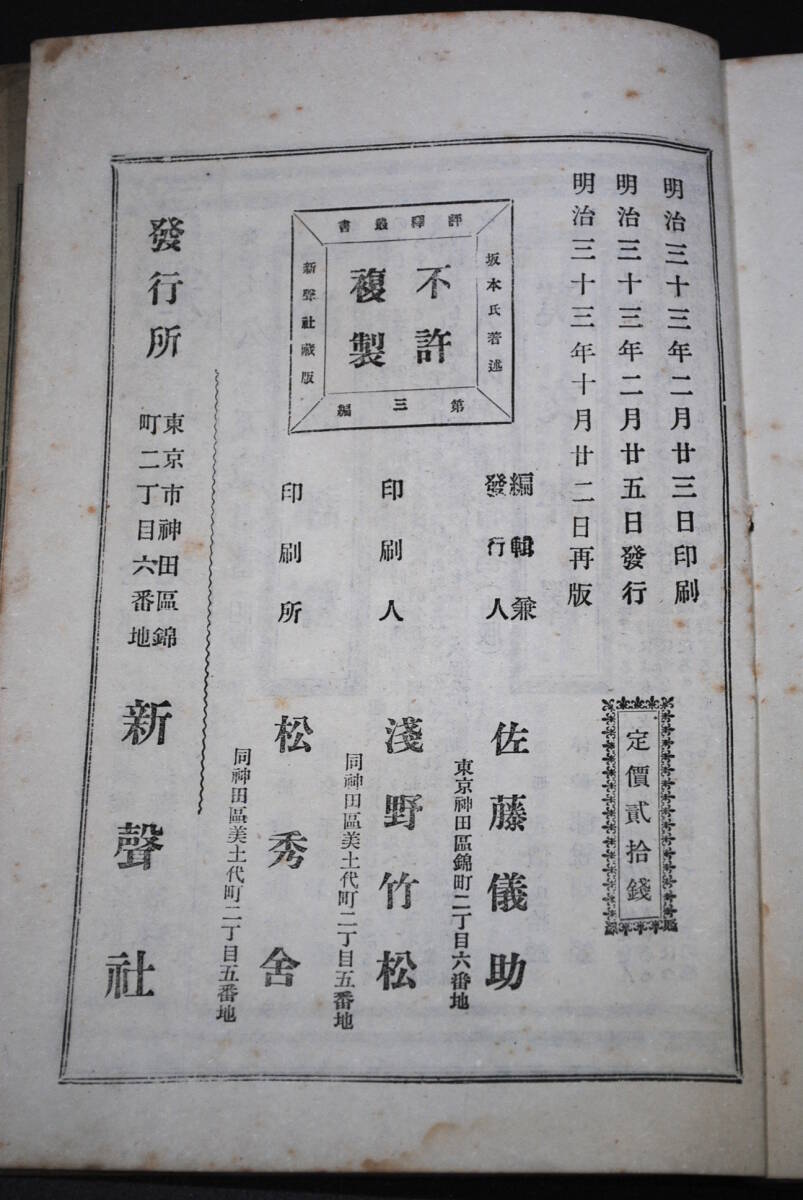 明治三十三年二月廿三日印刷
明治三十三年二月廿五日發行
明治三十三年十月廿二日再版
定價貳拾錢
評釋叢書
坂本氏著述
不許
複製
新聲社藏版
第三編
編輯兼
發行人
佐藤儀助
東京神田區錦町二丁目六番地
印刷人
淺野竹松
同神田區美土代町二丁目五番地
印刷所
松秀舍
同神田區美土代町二丁目五番地
發行所
東京市神田區錦
町二丁目六番地
新聲社